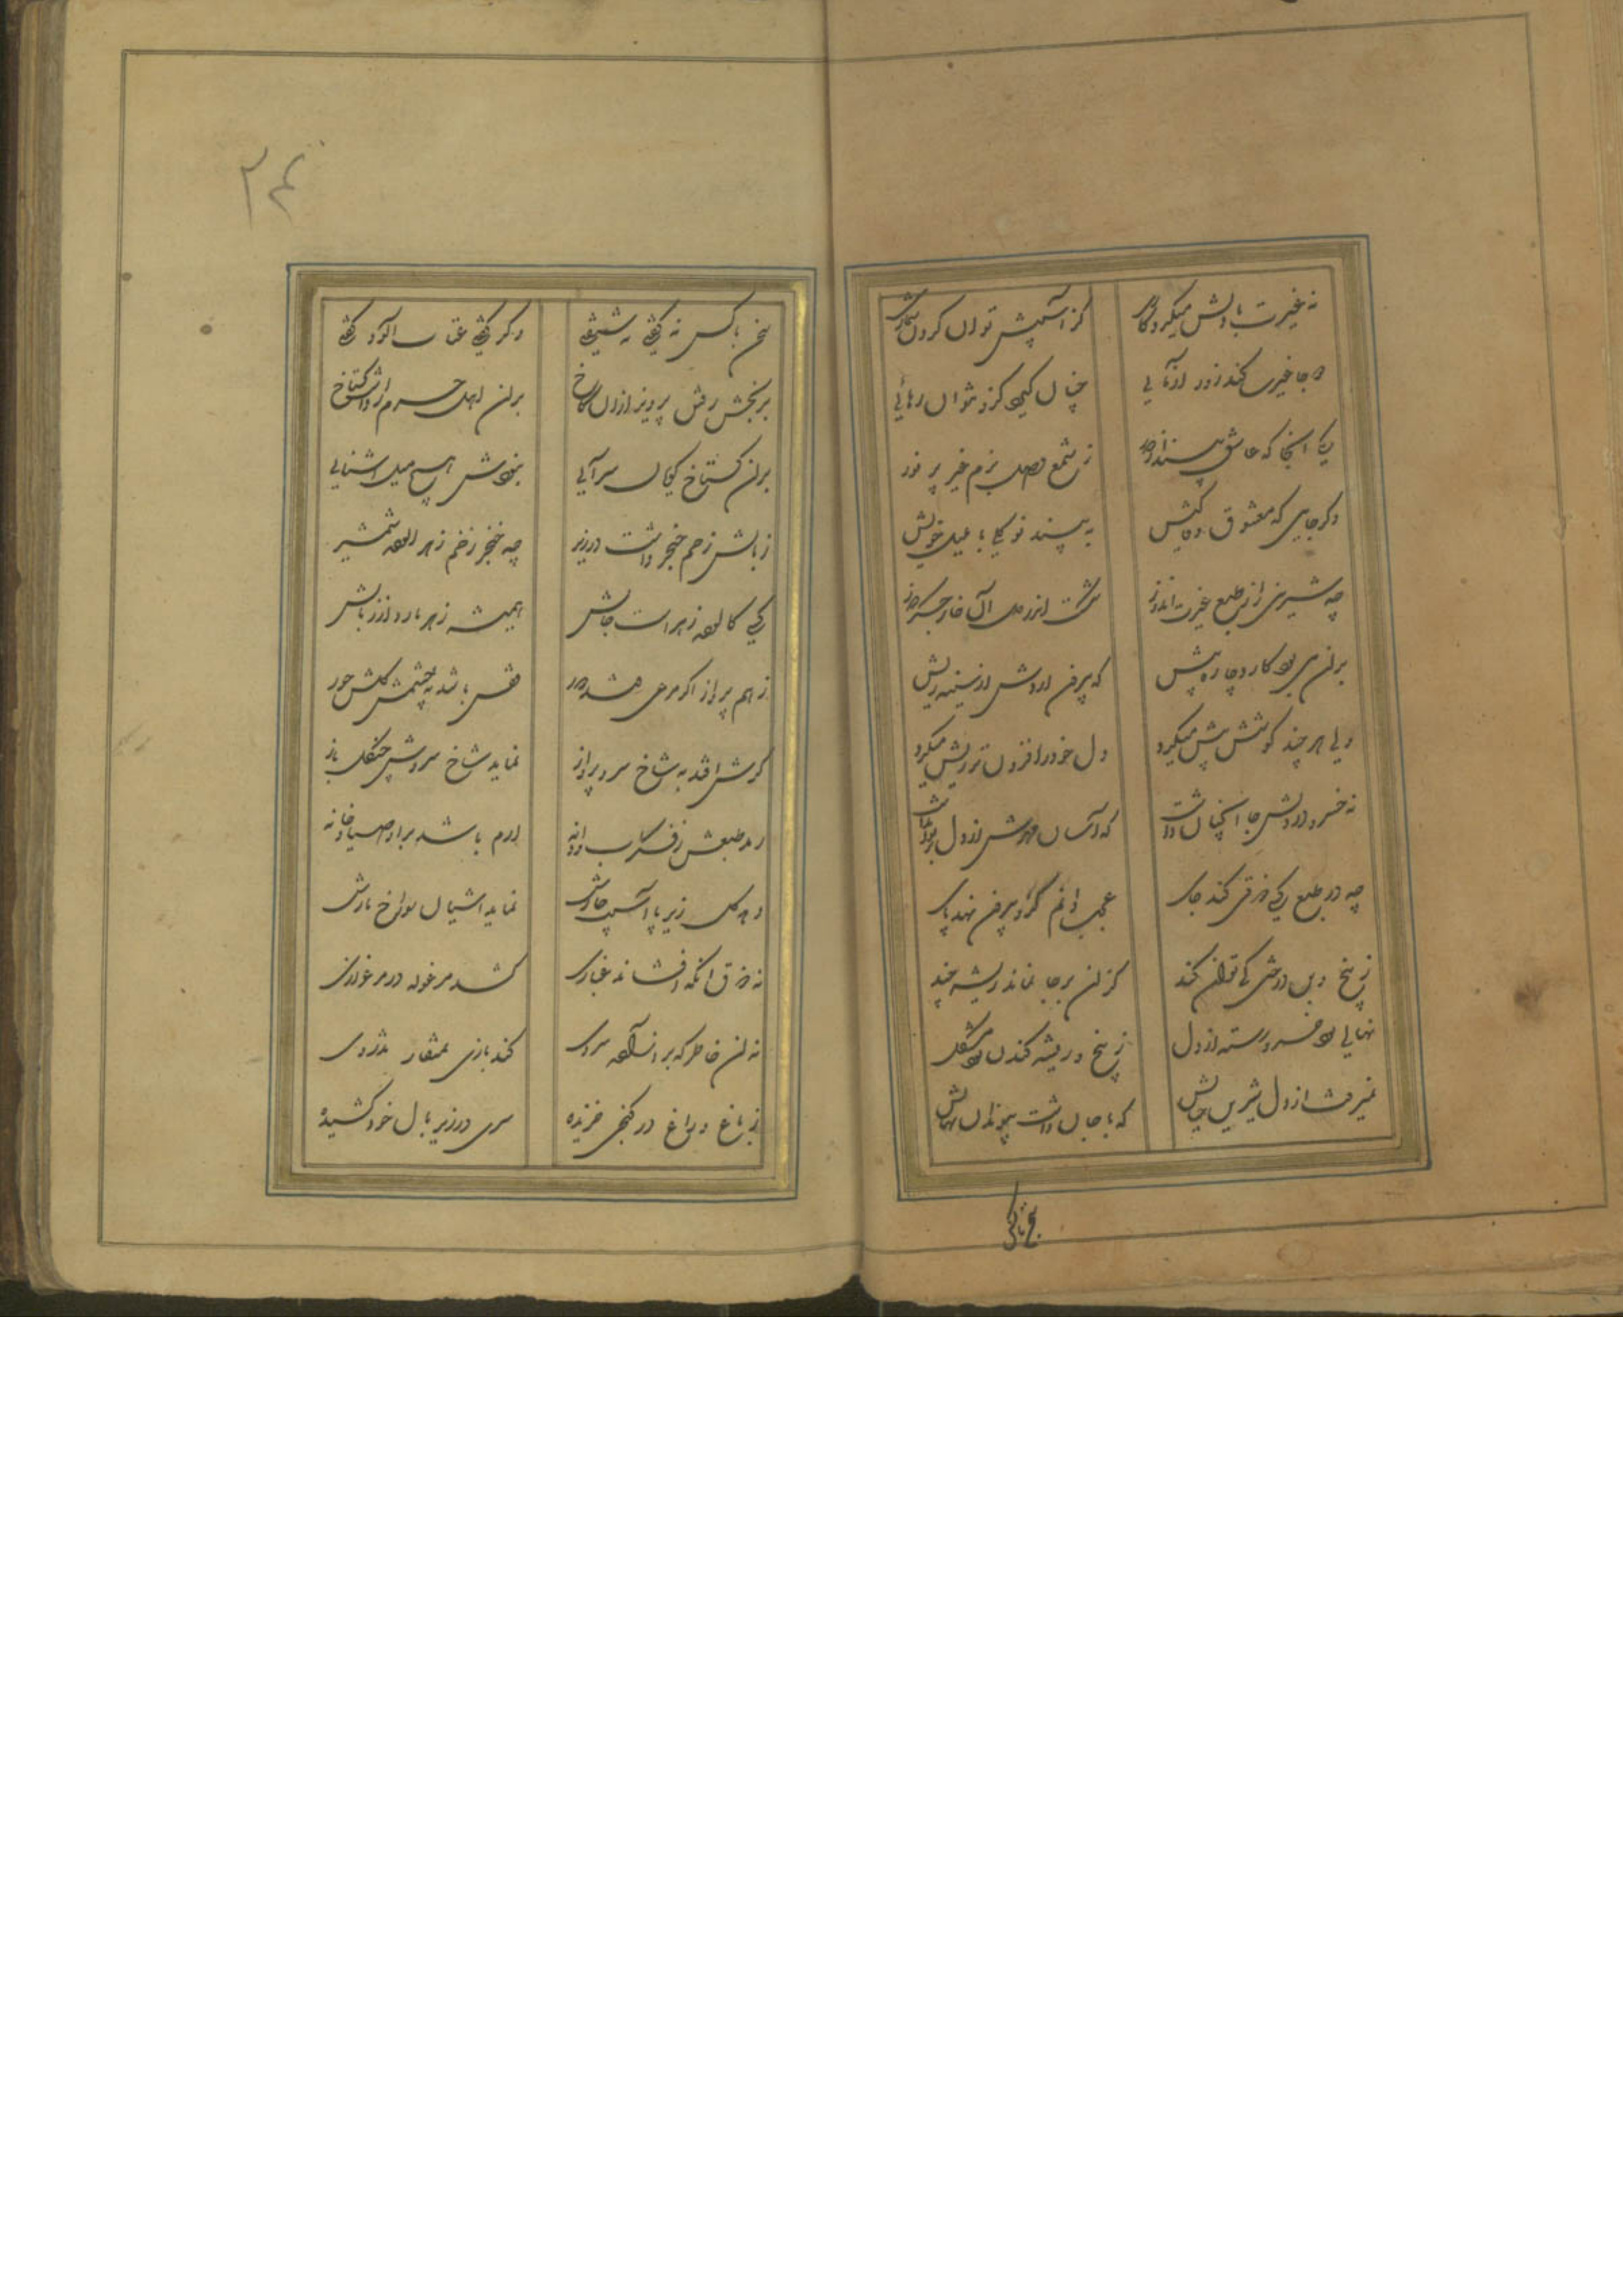 نه غیرت با دلش میکرد کاری کز آسیبش توان کردن شماری
دو جا غیرت کند زور آزمایی چنان گیرد کزو نتوان رهائی
یکی انجا که عاشق بیند از دور ز شمع وصل بزم غیر پر نور
دگر جایی که معشوق وفا کیش به بیند نو گلی با بلبل خویش
چه شیرین را ز طبع غیرت اندوز شکست اندر دل آن خار جگر دوز
بران می بود کارد چاره پیش که بیرون اردش از سینه ریش
ولی هر چند کوشش بیش میکرد دل خود را فزون تر ریش میکرد
نه خسرو در دلش جا انچنان داشت که آسان مهرش از دل بر توان داشت
چه در طبع کسی ذوقی کند جای عجب دانم کزو بیرون نهد پای
ز بیخ و بن درختی کی توان کند کزان بر جا نماند ریشه چند
نهالی بود خسرو رسته از دل ز بیخ و ریشه کندن بود مشکل
نمیرفت از دل شیرین خیالش که با جان داشت پیوند ان نهالش
سخن با کس
سخن با کس نه گفتی نه شنیفتی وگر گفتی عتاب آلود گفتی
برنجش رفتن پرویز ازان کاخ بران اهل حرم را داشت گستاخ
بران گستاخ گویان سرآیی بخویش هیچ میل اشنایی
زبانش زخم خنجر داشت در زیر چه خنجر زخم زهر الوده شمشیر
کسی کالوده زهر است جانش همیشه زهر بارد از زبانش
ز هم پرواز اگر مرغی فتد دور قفس باشد بچشمش گلشن حور
گرش افتد به شاخ سرو پرواز نماید شاخ سروش چنگل باز
رمد طبعش ز فکر آب و دانه ارم باشد بر او صیاد خانه
دهد گل زیر پا آسیب خارش نماید اشیان سوراخ مارش
نه ذوق انکه افشاند غباری کشد مرغوله در مرغزاری
نه ان خاطر که بر ساق سروی کند بازی بمنقار تذروی
ز باغ و راغ در کنجی خزیده سری در زیر بال خود کشیده